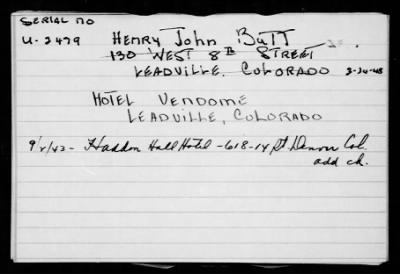 SERIAL NO
U-2479 HENRY JOHN BUTT
130 WEST 8TH STREET
LEADVILLE, COLORADO 2-24-43
HOTEL VENDOME
LEADVILLE, COLORADO
9/2/43- Haddon Hall Hotel -618-14 St Denver Col.
add ch.